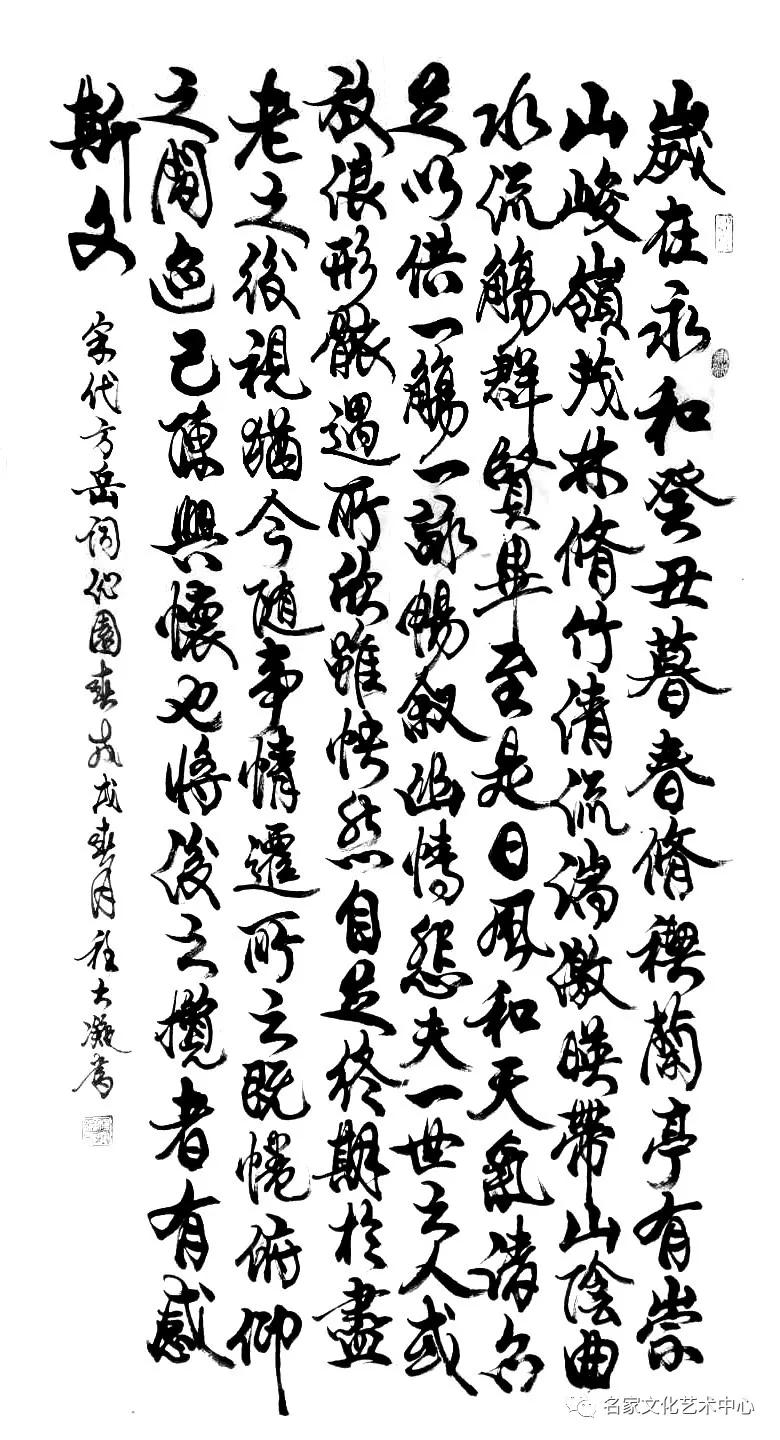 嵗在永和癸丑暮春脩禊蘭亭有崇
山峻嶺茂林脩竹清流湍激暎帶山陰曲
水流觴群賢畢至是日風和天氣清亦
足以供一觴一詠暢敘幽情悲夫一世之人或
放浪形骸遇所欣雖快然自足終期於盡
老之後視猶今随事情遷所之既惓俯仰
之間迹已陳興懷也將後之攬者有感
斯文
宋代方岳詞沁園春戊戌春月程大凝書
名家文化艺术中心